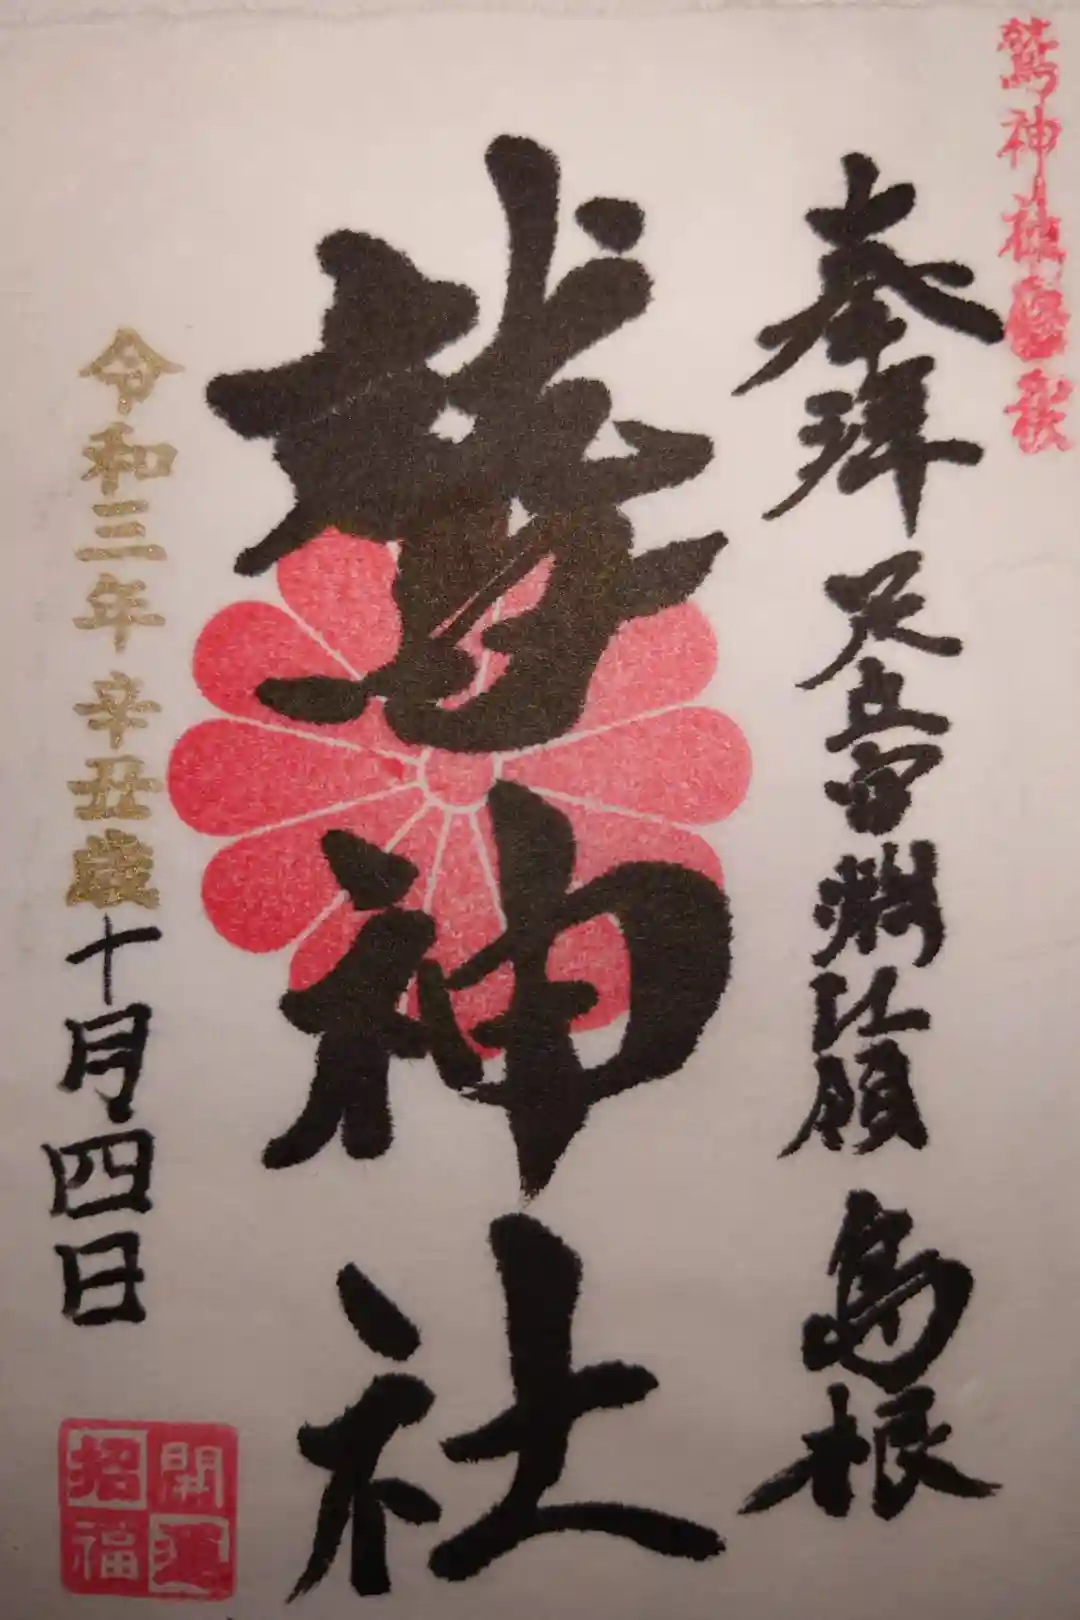 鷲神社
奉拝 足立郡淵江領 島根
鷲神社
令和三年辛丑歳十月四日
開運
招福